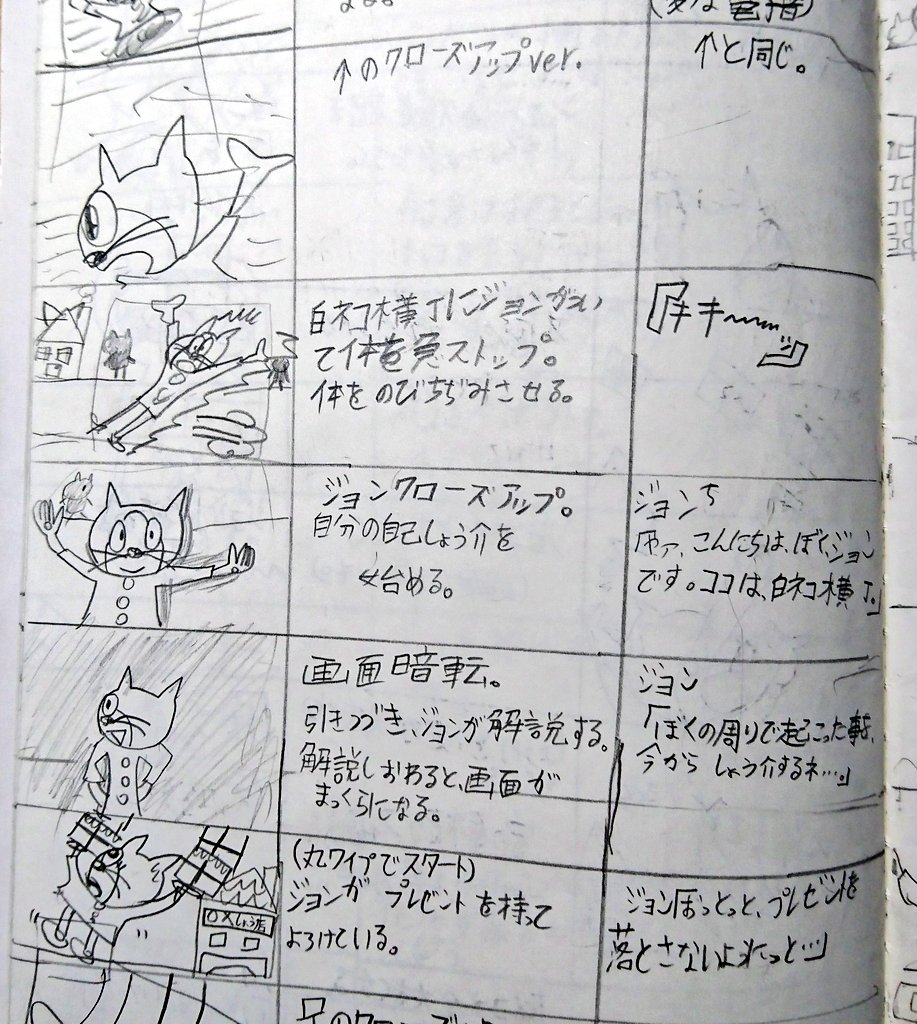 (多な電指)
↑のクローズアップver.
↑と同じ。
白ネコ横丁にジョンがつい
て体を急ストップ。
体をのびちぢみさせる。
『キキー〜〜ッ』
ジョンクローズアップ。
自分の自己しょう介を
始める。
ジョン
こんにちは、ぼくジョン
です。ココは、白ネコ横丁。」
画面暗転。
引きつづき、ジョンが解説する。
解説しおわると、画面が
まっくらになる。
ジョン
「ぼくの周りで起こった事を、
今からしょう介するネ…。」
(丸ワイプでスタート)
ジョンがプレゼントを持って
よろけている。
ジョン「おっとっと、プレゼントを
落とさないよに、っと…」
〇×しょう店